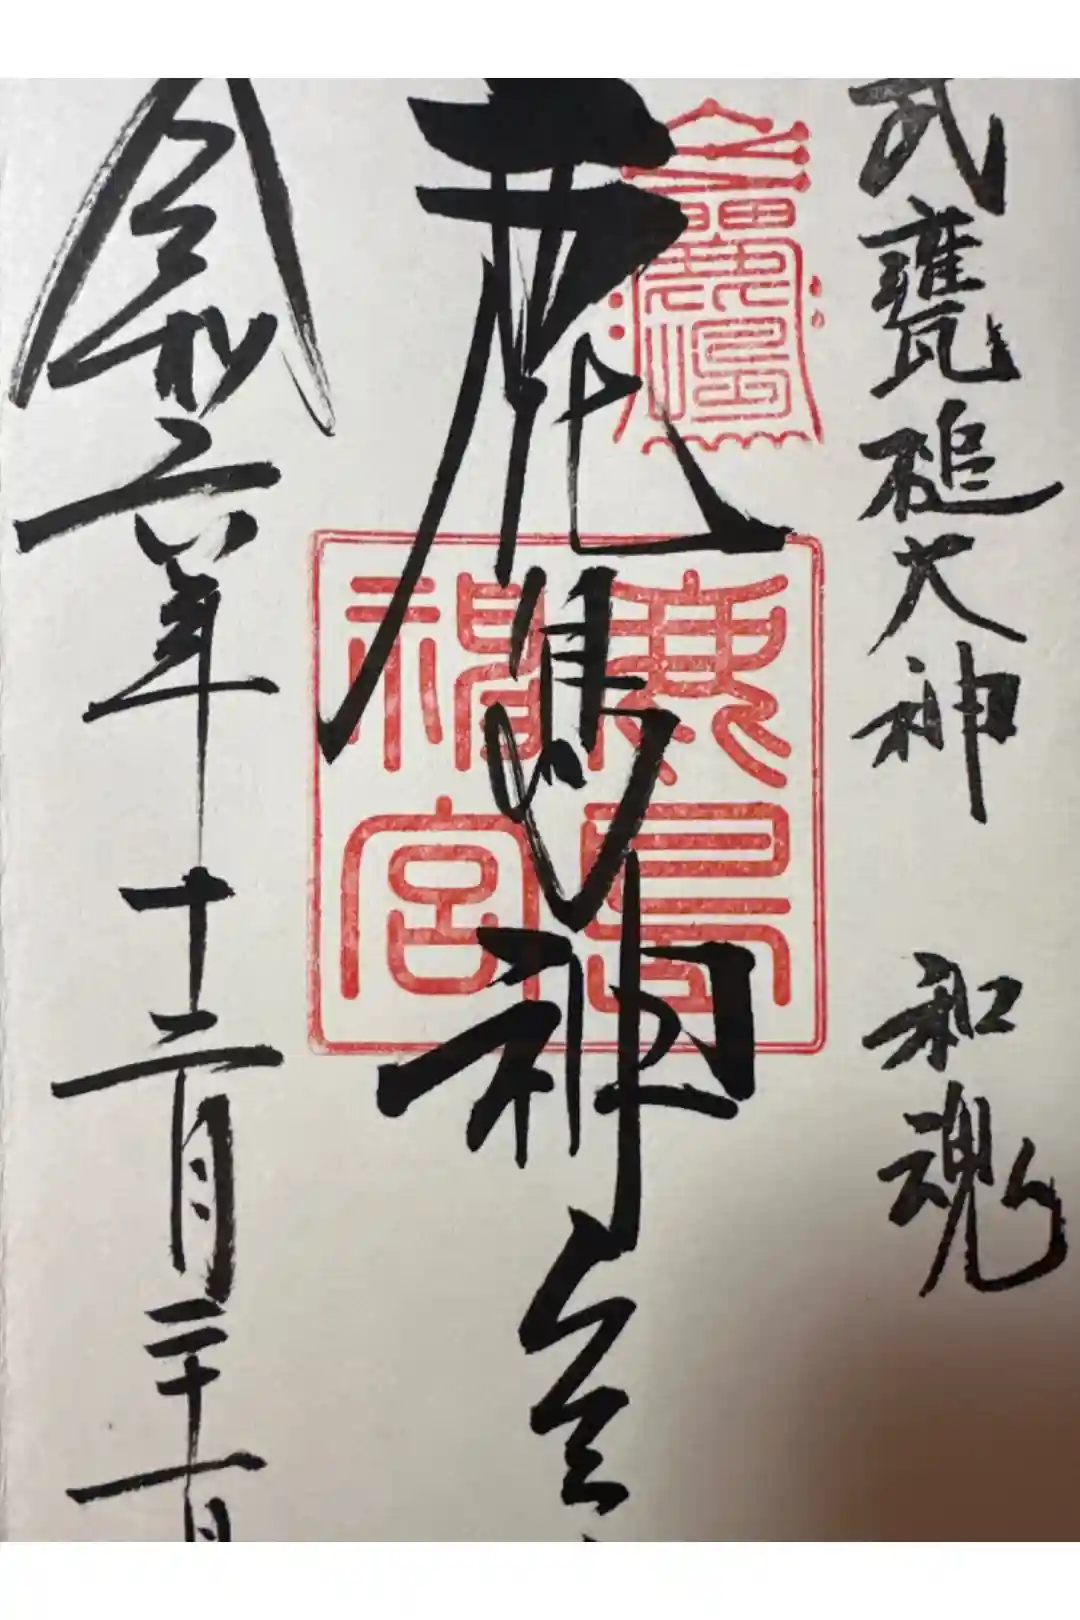 武甕槌大神 和魂
鹿島神宮
鹿島
神宮
令和六年十二月二十一日